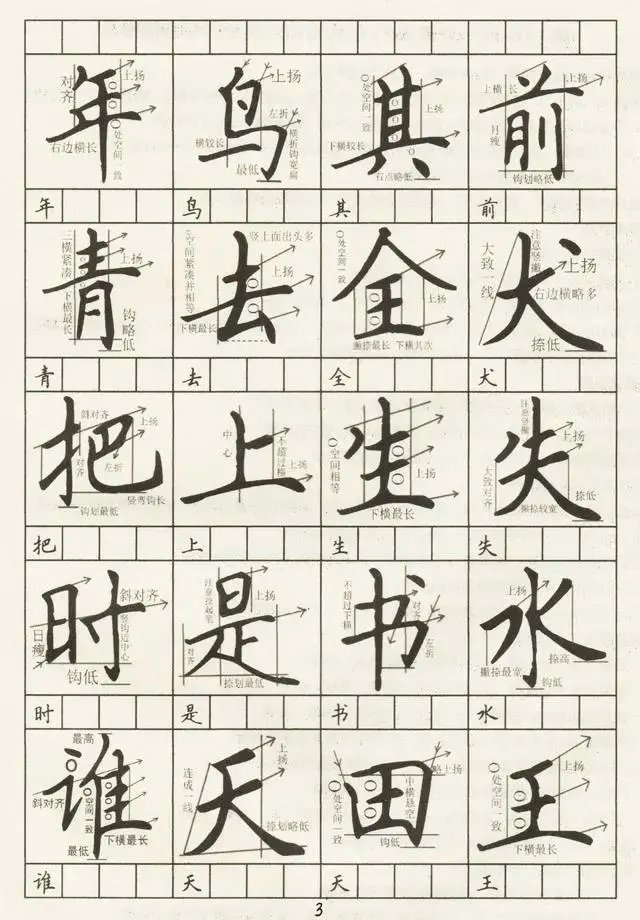 年 鸟 其 前
对齐 上扬 右边横长 O处空间一致
上扬 左折 横较长 横折钩宽扁 最低
O处空间一致 上扬 下横较长 右点略低
上横长 上扬 月瘦 钩划略低
年 鸟 其 前
青 去 全 犬
三横紧凑 下横最长 上扬 钩略低
O空间紧凑并相等 竖上面出头多 上扬 下横最长
O处空间一致 上扬 撇捺最长 下横其次
大致一线 注意竖撇 上扬 右边横略多 捺低
青 去 全 犬
把 上 生 失
斜对齐 上扬 对齐 左折 钩划最低 竖弯钩长
中心 不超过横 上扬
O空间相等 上扬 下横最长
注意竖撇 上扬 大致对齐 捺低 撇捺较宽
把 上 生 失
时 是 书 水
斜对齐 日瘦 竖钩远中心 钩低
注意捺起笔 上扬 对齐 捺划最低
不超过下横 对齐 上扬 左折
上扬 捺高 撇捺最宽 钩低
时 是 书 水
谁 天 田 王
最高 斜对齐 O空间一致 上扬 最低 下横最长
连成一线 上扬 捺划略低
O处空间一致 中横悬空 略上扬 钩低
O处空间一致 上扬 下横最长
谁 天 天 王
3